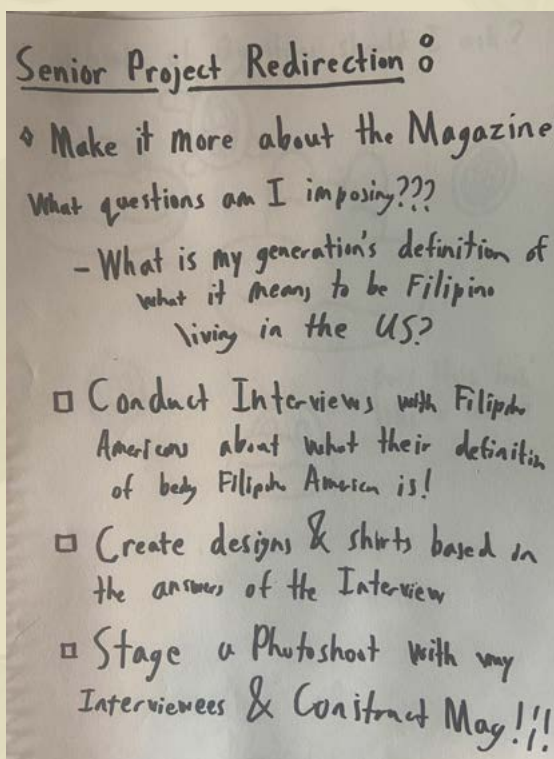 Senior Project Redirection:
◊ Make it more about the Magazine
What questions am I imposing???
- What is my generation's definition of
what it means to be Filipino
living in the US?
□ Conduct Interviews with Filipino
Americans about what their definition
of being Filipino American is!
□ Create designs & shirts based on
the answers of the Interview
□ Stage a Photoshoot with my
Interviewees & Construct Mag!!!